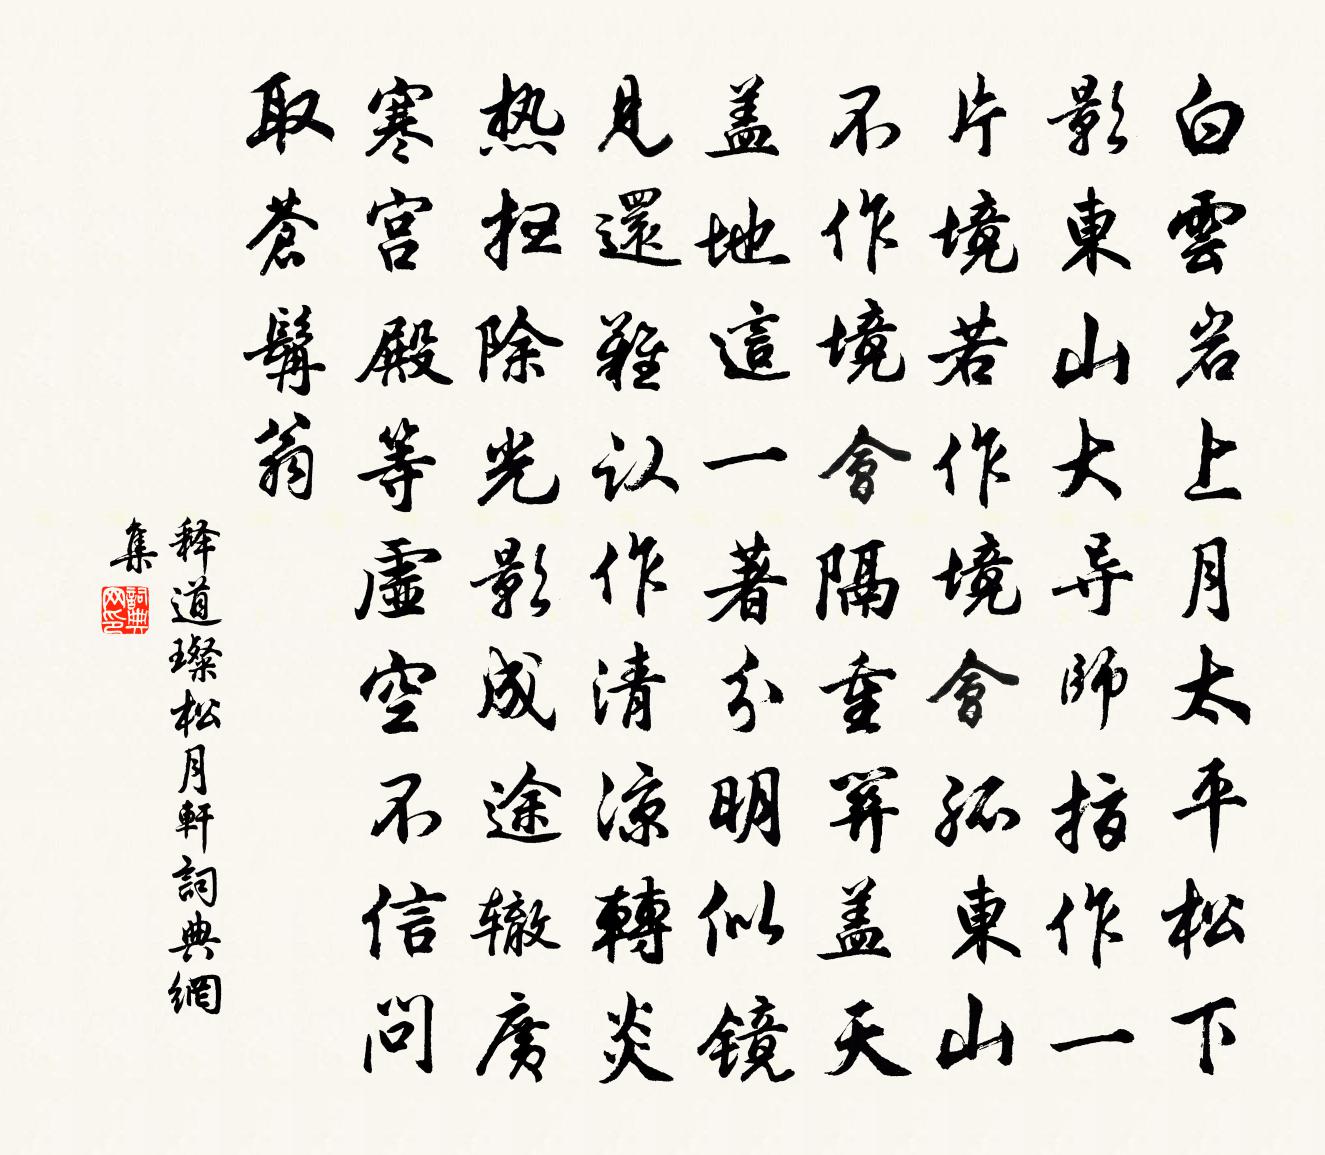 白雲岩上月太平松下
影東山大导師指作一
片境若作境會孤東山
不作境會隔重関盖天
盖地這一著分明似镜
見還難认作清涼轉炎
热扭除光影成途辙廣
寒宫殿等虚空不信問
取蒼髯翁
释道璨松月軒詞典網
集
詞典网印